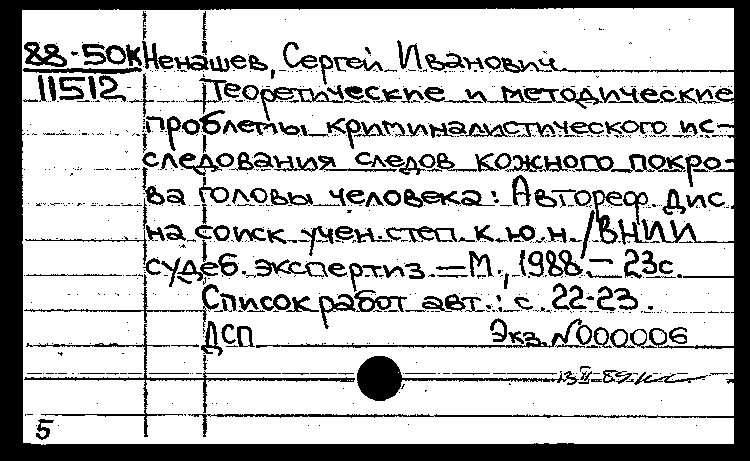 88-50К Ненашев, Сергей Иванович.
11512 Теоретические и методические
проблемы криминалистического ис-
следования следов кожного покро-
ва головы человека: Автореф. Дис.
на соиск. учен. степ. к.ю.н. / ВНИИ
судеб. экспертиз. — М., 1988. — 23с.
Список работ авт.: с. 22-23.
ДСП Экз. №000006
5